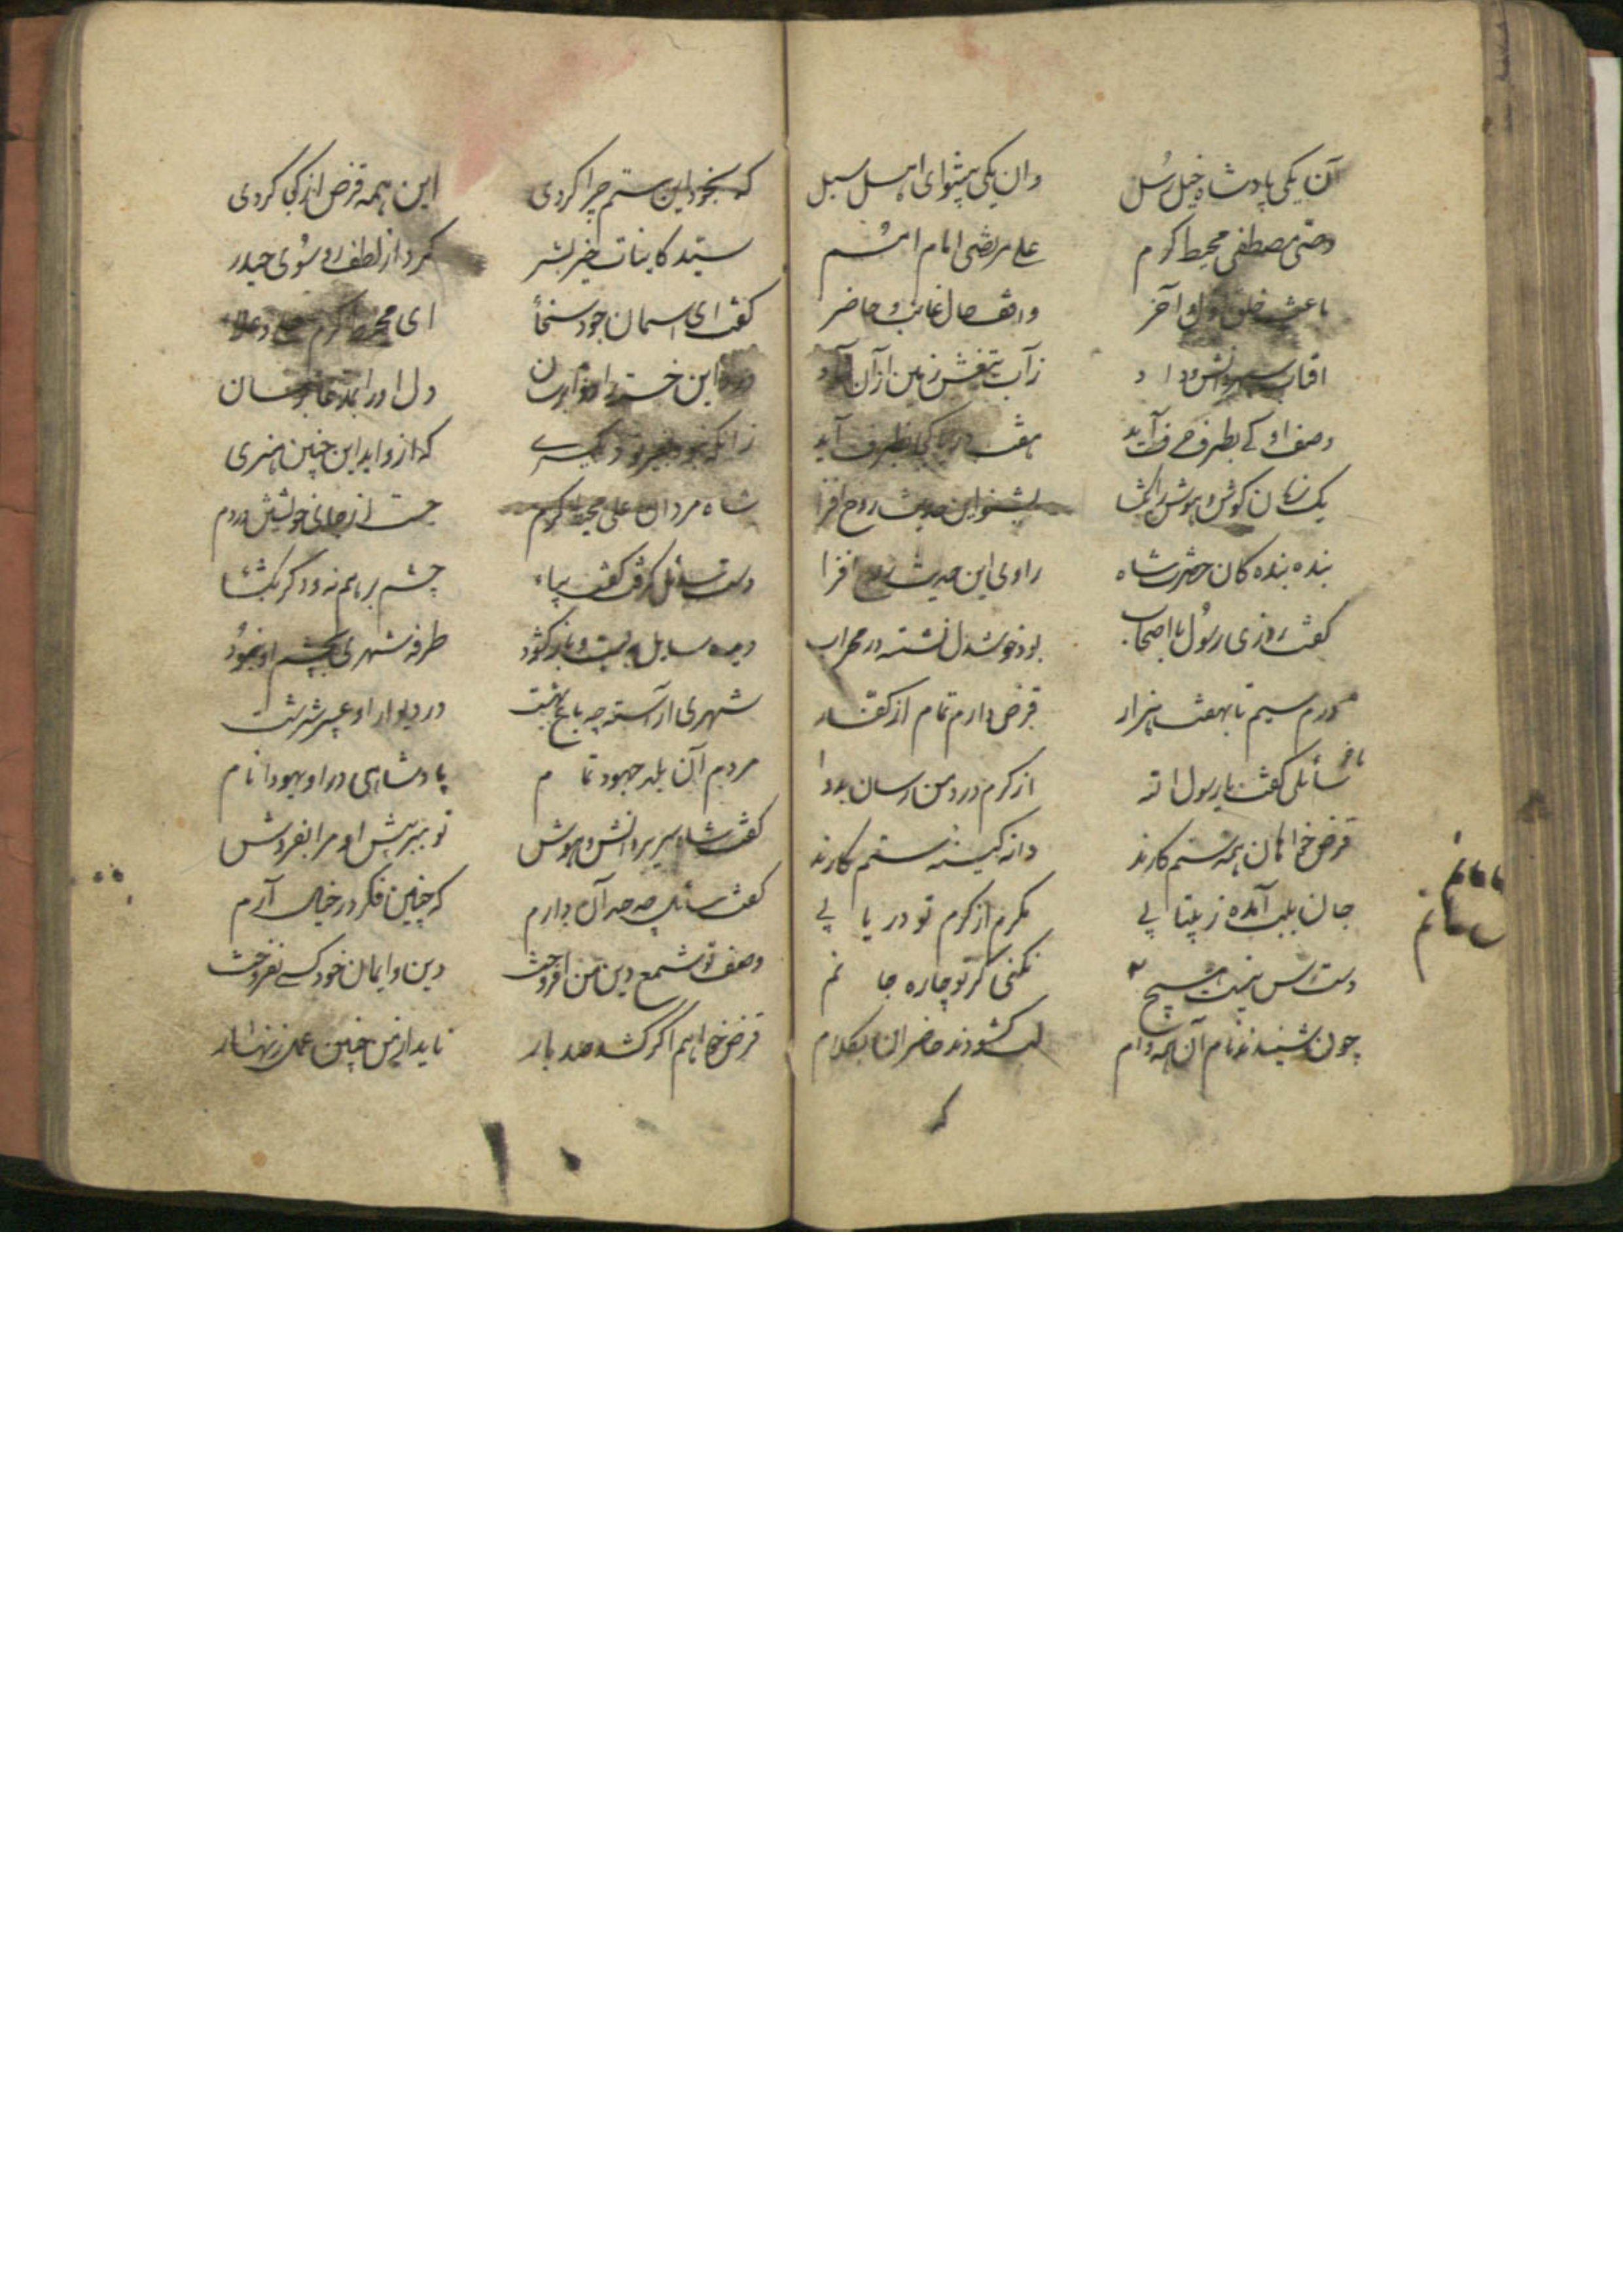 آن یکی پادشاه خیل رسل وان یکی پیشوای اهل سبل
وصی مصطفی محیط کرم علی مرتضی امام امم
باعث خلق اول و آخر واقف حال غائب و حاضر
افتاب سپهر دانش و داد زآب تیغش زمین
وصف او کی بطرف حرف آید هفت دریا کجا بظرف آید
یک زمان گوش هوش را بگشا بشنو این حدیث روح افزا
بنده بنده کان حضرت شاه راوی این حدیث روح افزا
گفت روزی رسول با اصحاب بود خوشدل نشسته در محراب
درم سیم تا بهفت هزار قرض دارم تمام از کفار
سائلی گفت یا رسول الله از کرم درد من رسان بدوا
قرض خواهان همه ستم کارند دانه کینه ستم کارند
جان بلب آمده ز بیتابی مکرم از کرم تو دریابی
دست رس نیست هیچ نکنی گر تو چاره جانم
چون شنیدند نام آن همه وام لب گشودند حاضران بکلام
که بخود این ستم چرا کردی این همه قرض از کجا کردی
سید کاینات خیر بشر کرد از لطف رو سوی حیدر
گفت ای آسمان جود سخا ای محیط کرم
این خسته را دل او را
زانکه نبود بغیر تو دیگری که ازو اید این چنین هنری
شاه مردان علی محیط کرم جست از جای خویشتن در دم
دست سائل گرفت گفت بیا چشم بر هم نه و دگر بگشا
دیده سایل ببست و باز گشود طرفه شهری بچشم او بنمود
شهری آراسته چه باغ بهشت در دیوار او عبیر سرشت
مردم آن بلد جهود تمام پادشاهی در او یهودا نام
گفت شاه سریر دانش و هوش تو ببر پیش او مرا بفروش
گفت سائل چه حد آن دارم که چنین فکر در خیال آرم
وصف تو شمع دین من افروخت دین و ایمان خود کسی نفروخت
قرض خواهم اگر کشد صد بار ناید از من چنین عمل زنهار